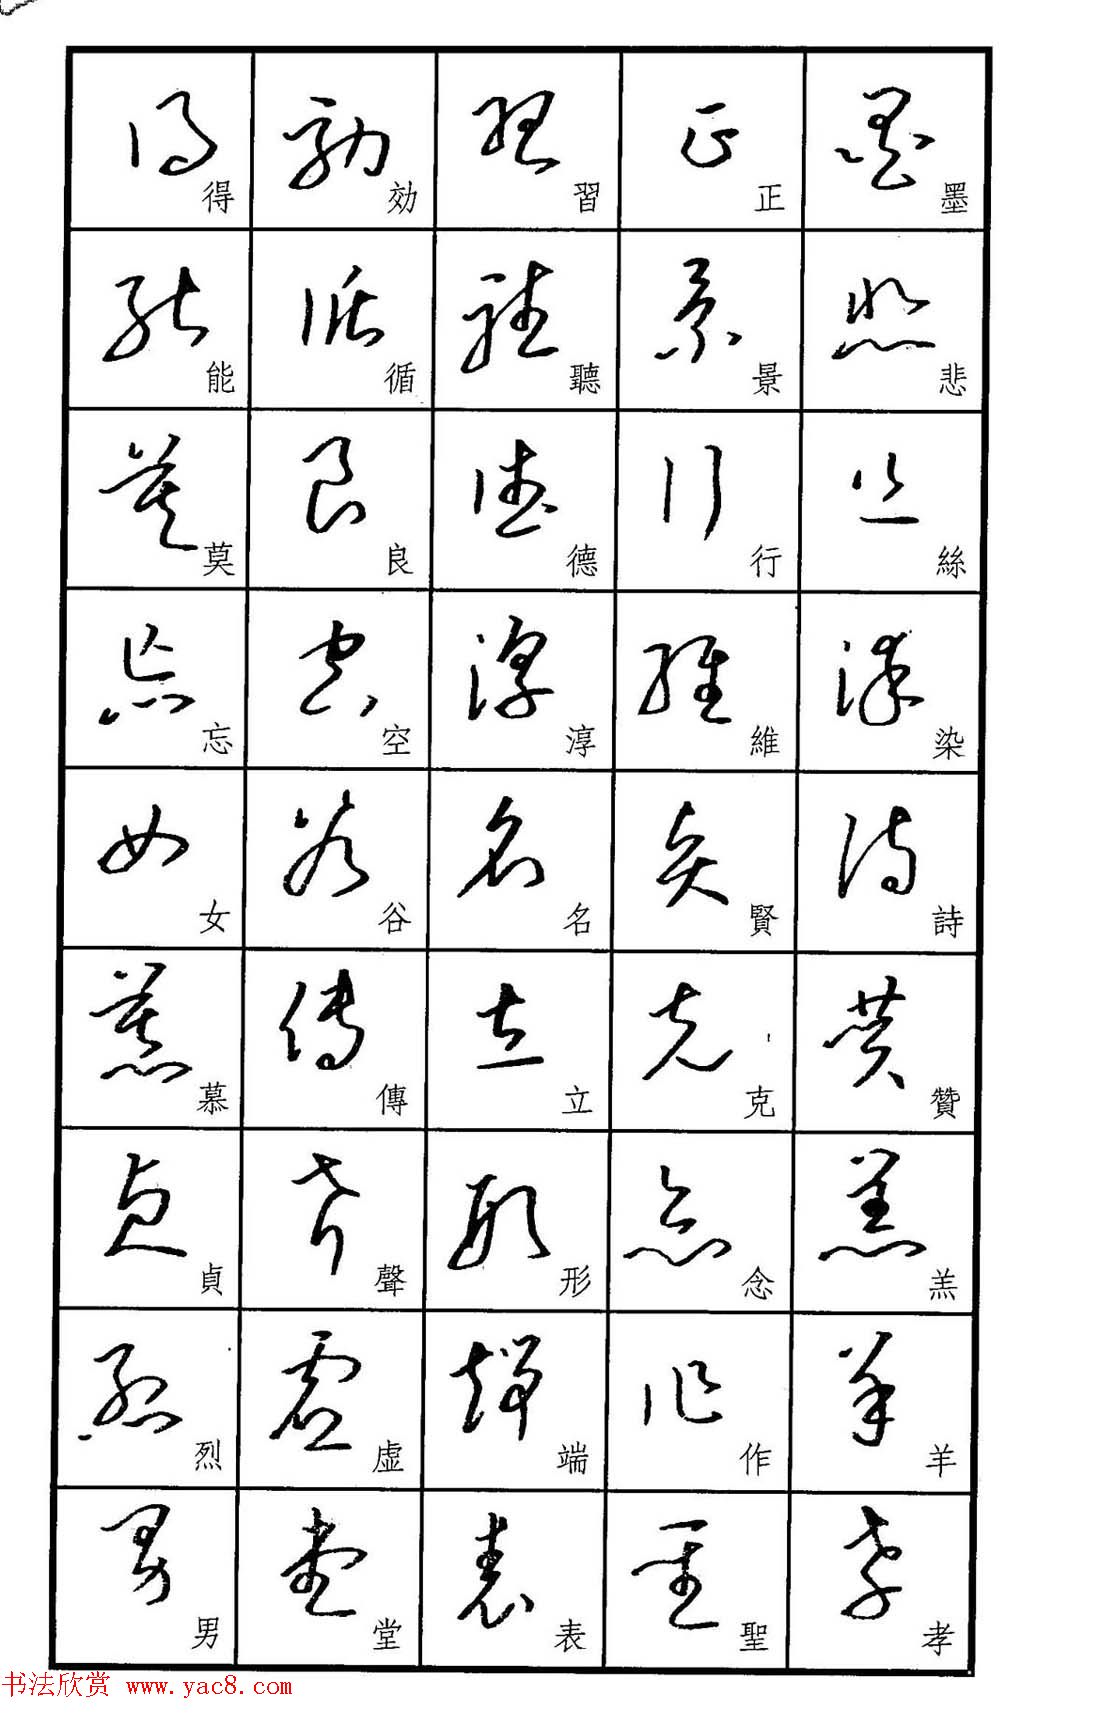 墨悲絲染詩贊羔羊孝
正景行維賢克念作聖
習聽德淳名立形端表
効循良空谷傳聲虛堂
得能莫忘女慕貞烈男
书法欣赏 www.yac8.com